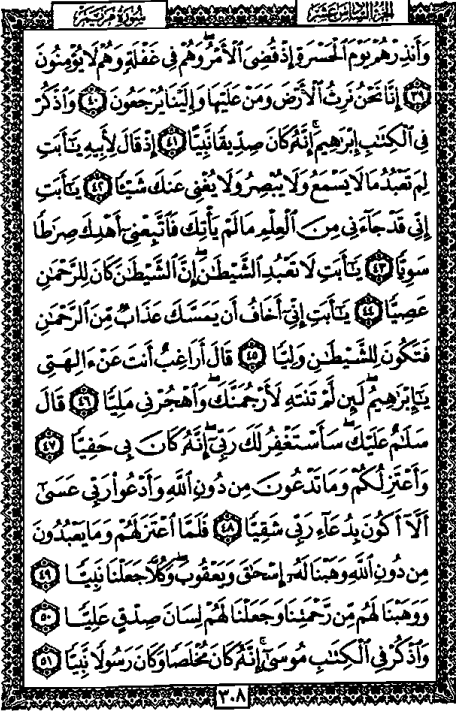 الجزء السادس عشر
سورة مريم
وَأَنذِرْهُمْ يَوْمَ ٱلْحَسْرَةِ إِذْ قُضِىَ ٱلْأَمْرُ وَهُمْ فِى غَفْلَةٍ وَهُمْ لَا يُؤْمِنُونَ
﴿٣٩﴾ إِنَّا نَحْنُ نَرِثُ ٱلْأَرْضَ وَمَنْ عَلَيْهَا وَإِلَيْنَا يُرْجَعُونَ ﴿٤٠﴾ وَٱذْكُرْ
فِى ٱلْكِتَٰبِ إِبْرَٰهِيمَ ۚ إِنَّهُۥ كَانَ صِدِّيقًا نَّبِيًّا ﴿٤١﴾ إِذْ قَالَ لِأَبِيهِ يَٰٓأَبَتِ
لِمَ تَعْبُدُ مَا لَا يَسْمَعُ وَلَا يُبْصِرُ وَلَا يُغْنِى عَنكَ شَيْـًٔا ﴿٤٢﴾ يَٰٓأَبَتِ
إِنِّى قَدْ جَآءَنِى مِنَ ٱلْعِلْمِ مَا لَمْ يَأْتِكَ فَٱتَّبِعْنِىٓ أَهْدِكَ صِرَٰطًا
سَوِيًّا ﴿٤٣﴾ يَٰٓأَبَتِ لَا تَعْبُدِ ٱلشَّيْطَٰنَ ۖ إِنَّ ٱلشَّيْطَٰنَ كَانَ لِلرَّحْمَٰنِ
عَصِيًّا ﴿٤٤﴾ يَٰٓأَبَتِ إِنِّىٓ أَخَافُ أَن يَمَسَّكَ عَذَابٌ مِّنَ ٱلرَّحْمَٰنِ
فَتَكُونَ لِلشَّيْطَٰنِ وَلِيًّا ﴿٤٥﴾ قَالَ أَرَاغِبٌ أَنتَ عَنْ ءَالِهَتِى
يَٰٓإِبْرَٰهِيمُ ۖ لَئِن لَّمْ تَنتَهِ لَأَرْجُمَنَّكَ ۖ وَٱهْجُرْنِى مَلِيًّا ﴿٤٦﴾ قَالَ
سَلَٰمٌ عَلَيْكَ ۖ سَأَسْتَغْفِرُ لَكَ رَبِّىٓ ۖ إِنَّهُۥ كَانَ بِى حَفِيًّا ﴿٤٧﴾
وَأَعْتَزِلُكُمْ وَمَا تَدْعُونَ مِن دُونِ ٱللَّهِ وَأَدْعُوا۟ رَبِّى عَسَىٰٓ
أَلَّآ أَكُونَ بِدُعَآءِ رَبِّى شَقِيًّا ﴿٤٨﴾ فَلَمَّا ٱعْتَزَلَهُمْ وَمَا يَعْبُدُونَ
مِن دُونِ ٱللَّهِ وَهَبْنَا لَهُۥٓ إِسْحَٰقَ وَيَعْقُوبَ ۖ وَكُلًّا جَعَلْنَا نَبِيًّا ﴿٤٩﴾
وَوَهَبْنَا لَهُم مِّن رَّحْمَتِنَا وَجَعَلْنَا لَهُمْ لِسَانَ صِدْقٍ عَلِيًّا ﴿٥٠﴾
وَٱذْكُرْ فِى ٱلْكِتَٰبِ مُوسَىٰٓ ۚ إِنَّهُۥ كَانَ مُخْلَصًا وَكَانَ رَسُولًا نَّبِيًّا ﴿٥١﴾
٣٠٨